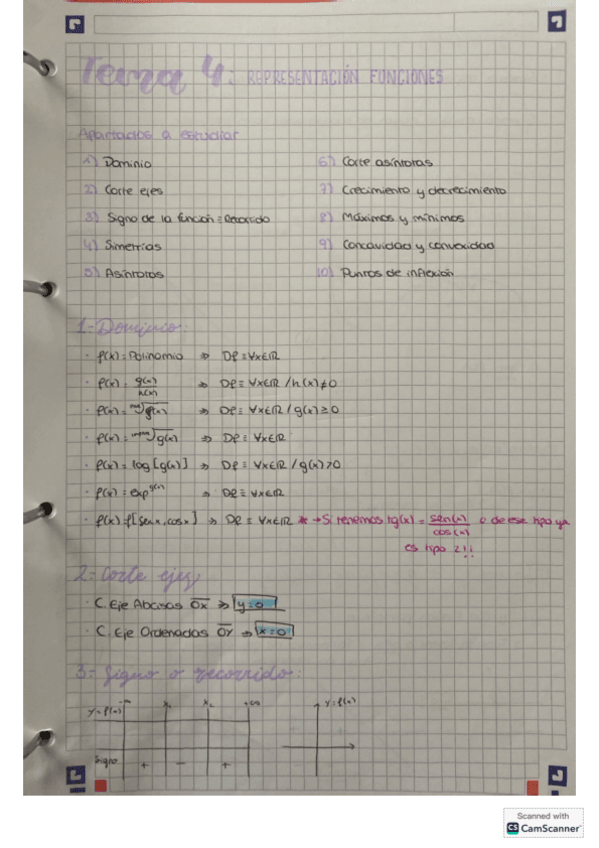 Tema 4: REPRESENTACIÓN FUNCIONES
Apartados a estudiar
1) Dominio
2) Corte ejes
3) Signo de la función = Recorrido
4) Simetrías
5) Asíntotas
6) Corte asíntotas
7) Crecimiento y decrecimiento
8) Máximos y mínimos
9) Concavidad y convexidad
10) Puntos de inflexión
1.- Dominio:
· f(x) = Polinomio ⇒ Df ≡ ∀x∈ℝ
· f(x) = g(x)/h(x) ⇒ Df ≡ ∀x∈ℝ / h(x)≠0
· f(x) = √g(x) ⇒ Df ≡ ∀x∈ℝ / g(x)≥0
· f(x) = √g(x) ⇒ Df ≡ ∀x∈ℝ
· f(x) = log[g(x)] ⇒ Df ≡ ∀x∈ℝ / g(x)>0
· f(x) = exp^g(x) ⇒ Df ≡ ∀x∈ℝ
· f(x) = f[sen x, cos x] ⇒ Df ≡ ∀x∈ℝ * → Si tenemos tg(x) = sen(x)/cos(x) o de ese tipo ya
es tipo 2!!
2.- Corte ejes
· C. Eje Abcisas OX ⇒ y=0
· C. Eje Ordenadas OY ⇒ x=0
3.- Signo o recorrido:
y=f(x) -∞ x₁ x₂ +∞
Signo + - +
y=f(x)
Scanned with
CS CamScanner